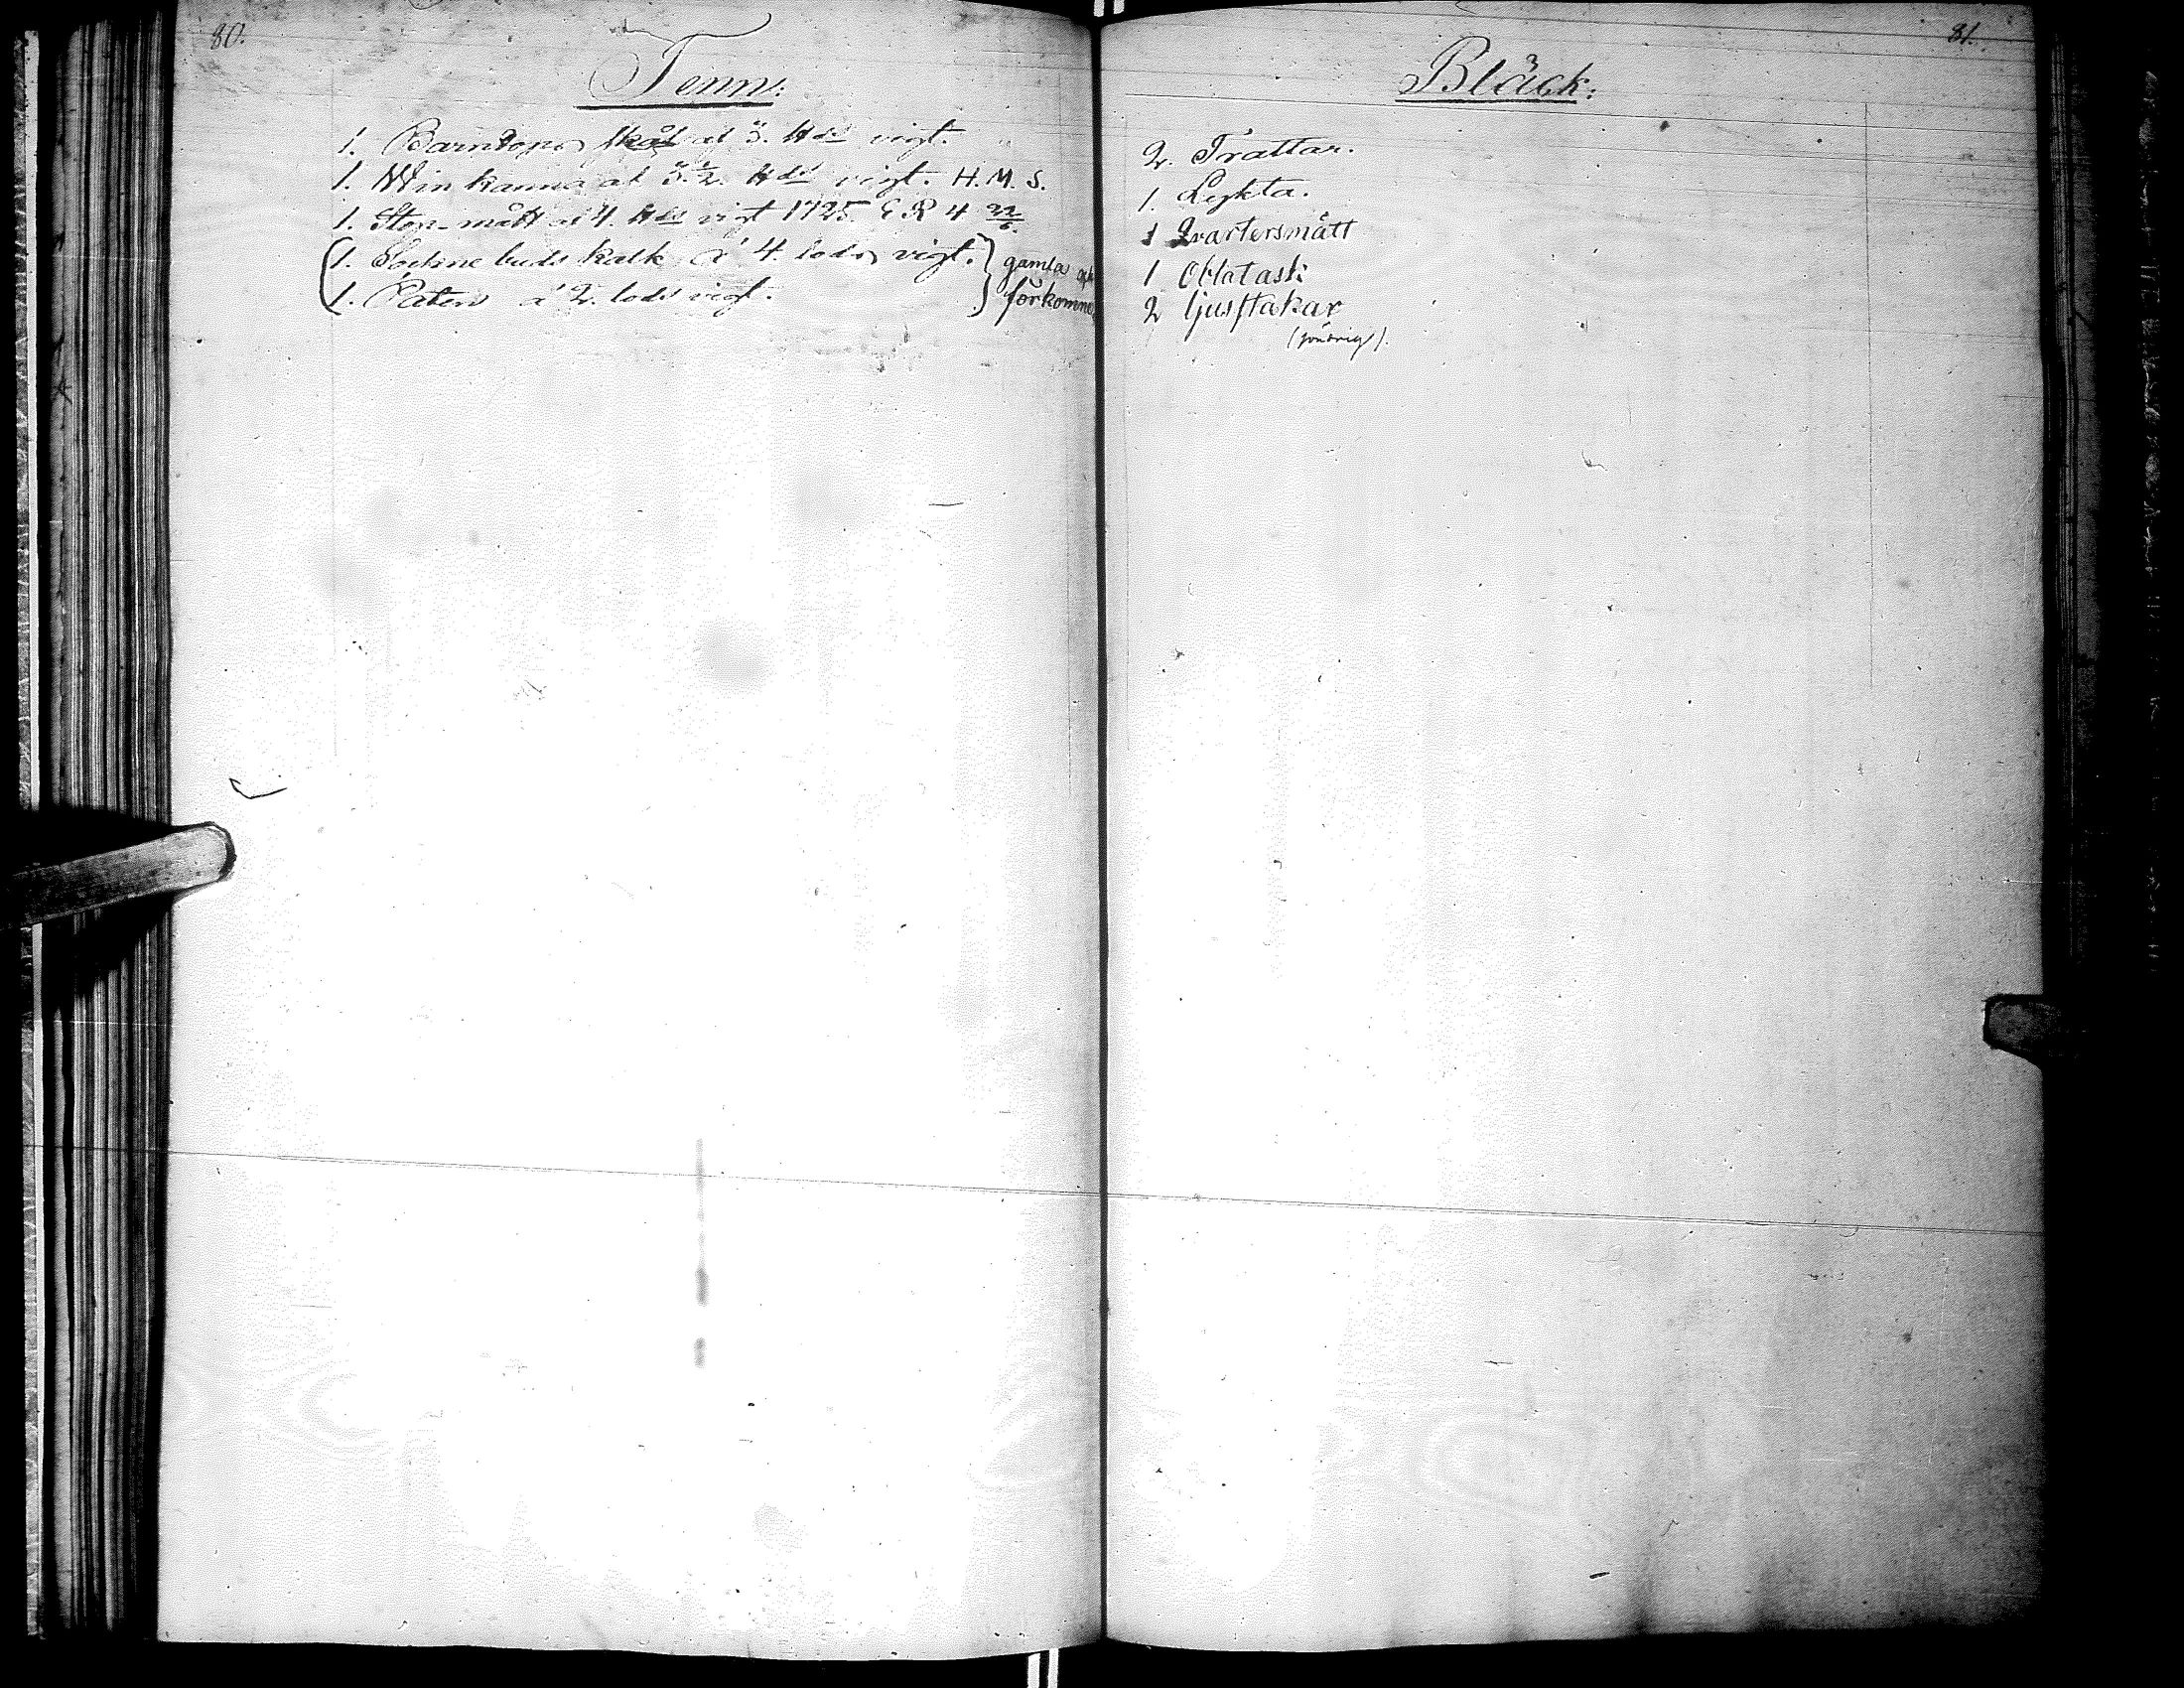 80.
Tenn:
1. Barndops skål al 3. ℔ds vigt.
1. Win kanna al 3. ½. ℔ds vigt. H. M. S.
1. Stop-mått al 4. ℔ds vigt 1725. C R 4
1. Sockne buds kalk a' 4. lods vigt. gamla
1. Paten a' 2. lods vigt. förkomne
81.
Bläck:
2. Trattar.
1. Lykta.
1 Qvartersmått
1 Oblatask
2 ljusstakar